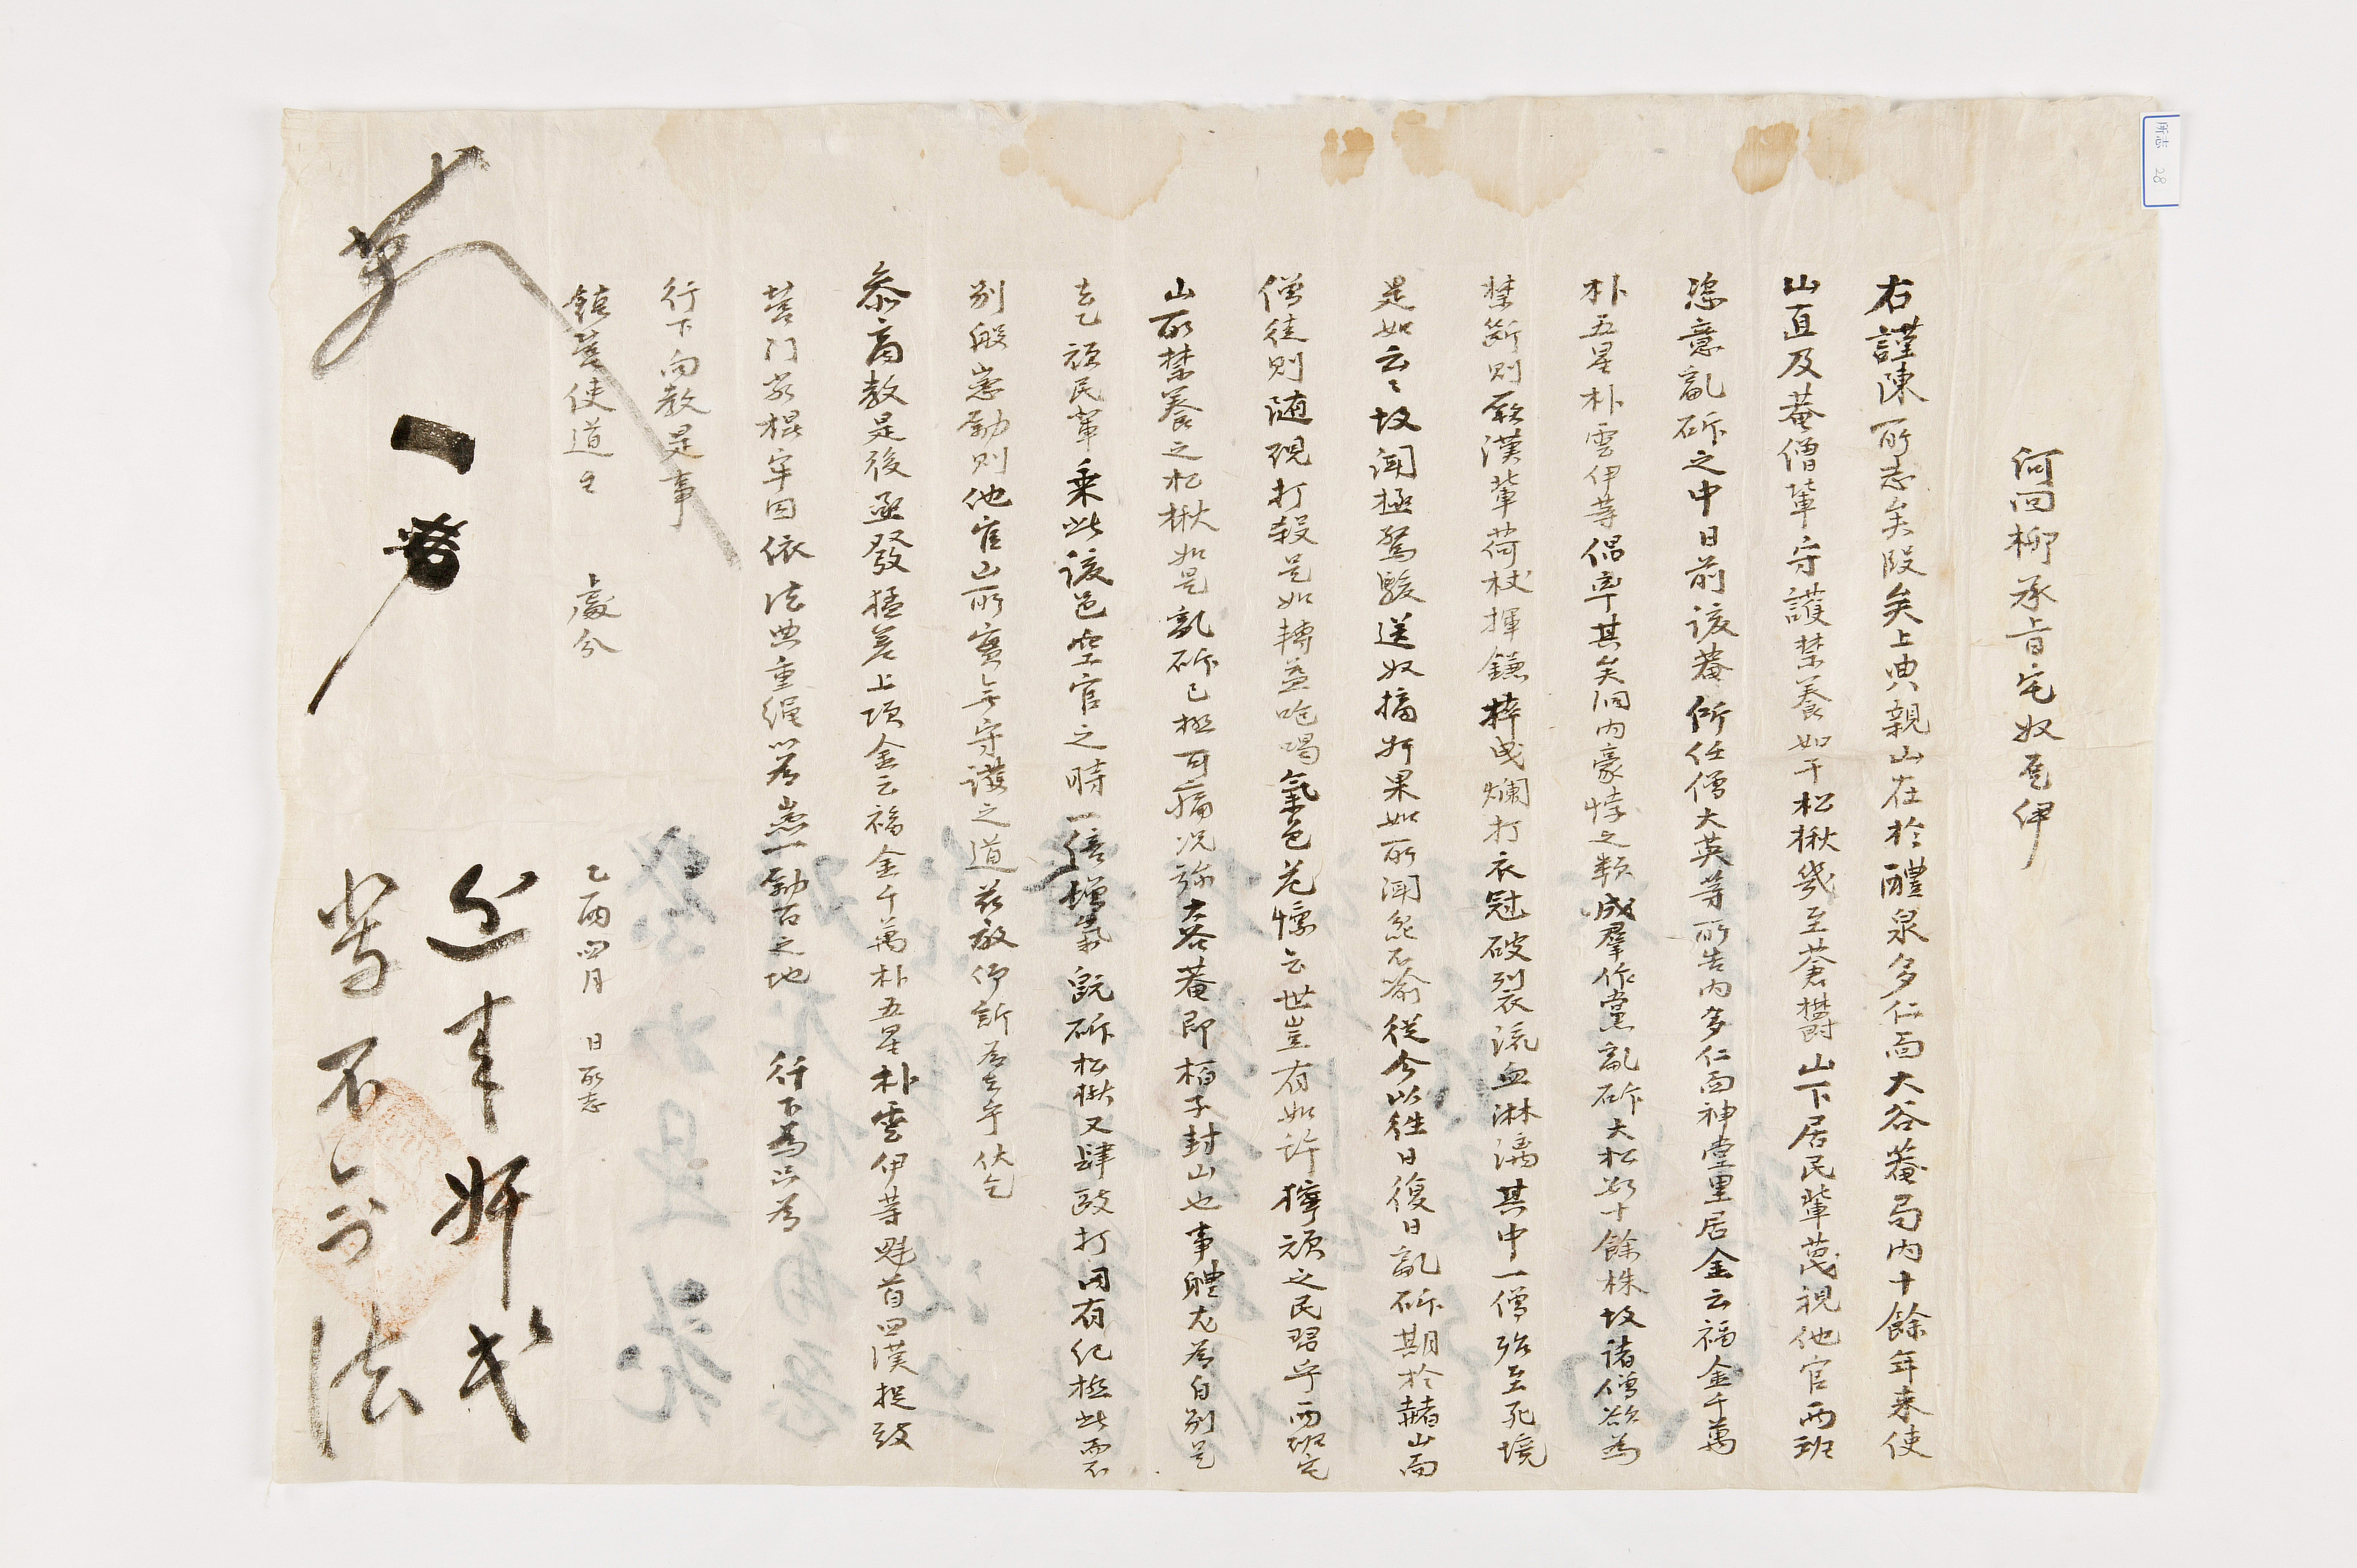 河回柳承旨宅奴㐓伊
右謹陳所志矣段矣上典親山在於醴泉多仁面大谷菴局內十餘年來使
山直及菴僧輩守護禁養如干松楸幾至蒼欝山下居民輩蔑視他官兩班
恣意亂斫之中日前該菴所任僧大英等所告內多仁面神堂里居金云福金千萬
朴五星朴雲伊等倡率其矣洞內豪悖之類成羣作黨亂斫大松數十餘株故諸僧欲爲
禁斷則厥漢輩荷杖揮鎌捽曳爛打衣冠破裂流血淋漓其中一僧殆至死境
是如云云故聞極驚駭送奴摘奸果如所聞兺不喩從今以徃日復日亂斫期於赭山而
僧徒則隨現打殺是如轉益咆喝氣色危懍云世豈有如許獰頑之民習乎兩班宅
山所禁養之松楸如是亂斫已極可痛况旀大谷菴卽栢子封山也事體尤爲自別是
去乙頑民輩乘此該邑空官之時一倍增氣旣斫松楸又肆毆打罔有紀極此而不
別般嚴勑則他官山所實無守護之道玆敢仰訴爲去乎伏乞
叅商敎是後亟發猛差上項金云福金千萬朴五星朴雲伊等魁首四漢捉致
營門嚴棍牢囚依法典重繩以爲嚴一勑百之地 行下爲只爲
行下向敎是事
鎭營使道主 處分
乙酉四月 日所志
近來奸民
等不
法
所志 28